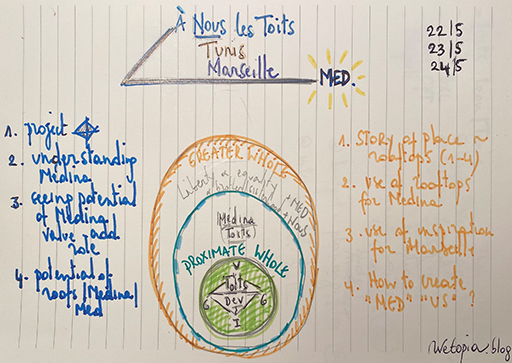 À Nous les Toits
Tunis
Marseille
MED.
22/5
23/5
24/5
1. project
2. understanding
Medina
3. seeing potential
of Medina
value add
role
4. potential of
roofs/Medina/
Med
GREATER WHOLE
Liberty equality + MED
+ NOUS
Medina
Toits
PROXIMATE WHOLE
V
Toits
G Dev G
I
1. STORY of place ~
rooftops (1-4)
2. use of rooftops
for Medina
3. use of inspiration
for Marseille
4. How to create
"MED" "US"?
Wetopia.blog